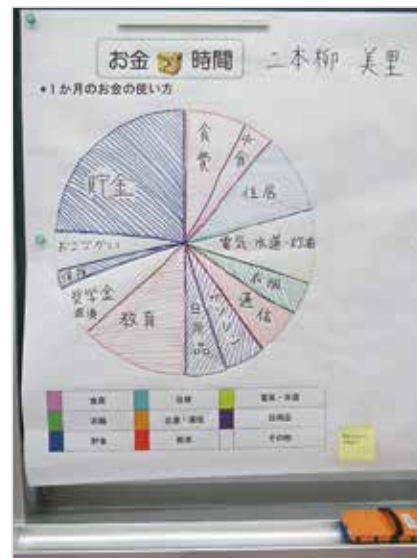 お金 時間 二本柳 美里
•1か月のお金の使い方
食費
外食
住居
電気・水道・灯油
衣服
通信
ガソリン
日用品
教育
奨学金
返済
保険
おこづかい
貯金
食費 住居 電気・水道
衣服 交通・通信 日用品
貯金 教育 その他